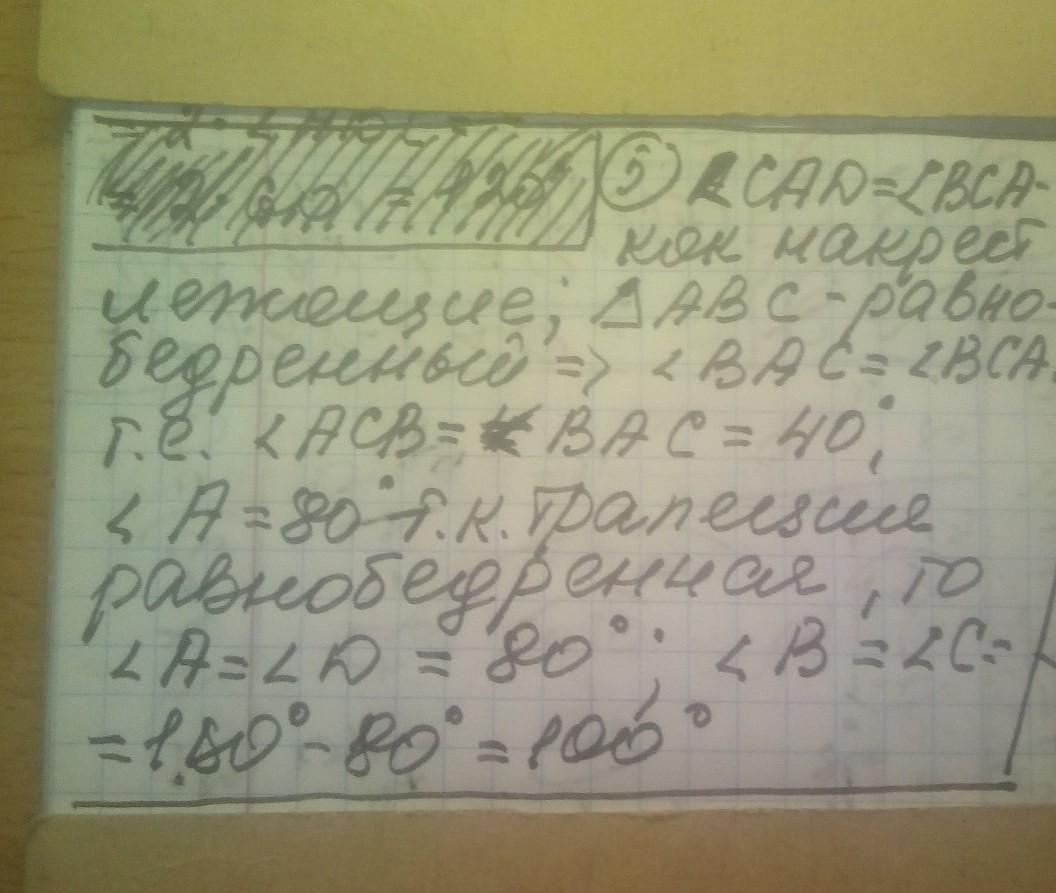 = 2 · 60 = 120°
5) ∠CAD = ∠BCA -
как накрест
лежащие; △ABC - равно-
бедренный => ∠BAC = ∠BCA.
т.е. ∠ACB = ∠BAC = 40°;
∠A = 80° т.к. трапеция
равнобедренная, то
∠A = ∠D = 80°; ∠B = ∠C =
= 180° - 80° = 100°